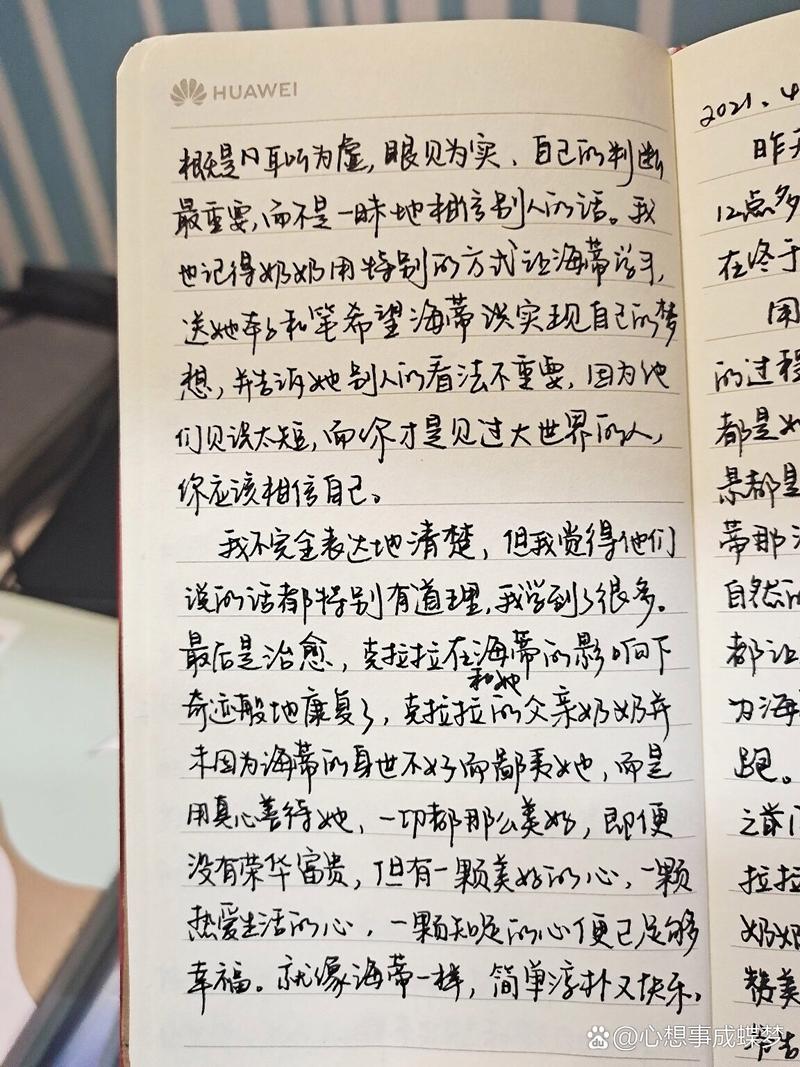 HUAWEI
概是只耳听为虚，眼见为实、自己的判断
最重要，而不是一昧地相信别人的话。我
也记得奶奶用特别的方式让海蒂学习，
送她本子和笔希望海蒂谈实现自己的梦
想，并告诉她别人的看法不重要，因为他
们见识太短，而你才是见过大世界的人，
你应该相信自己。
我不完全表达地清楚，但我觉得他们
说的话都特别有道理，我学到了很多。
最后是治愈，克拉拉在海蒂的影响下
和她
奇迹般地康复了，克拉拉的父亲奶奶并
未因为海蒂的身世不好而鄙夷她，而是
用真心善待她，一切都那么美好，即便
没有荣华富贵，但有一颗美好的心、一颗
热爱生活的心，一颗知足的心便已足够
幸福。就像海蒂一样，简单淳朴又快乐。
2021.4
昨天
12点多
在终于
闲
的过程
都是如
景都是
蒂那
自然的
都让
为海
跑。
之前
拉拉
奶奶
赞美
@心想事成蝶梦